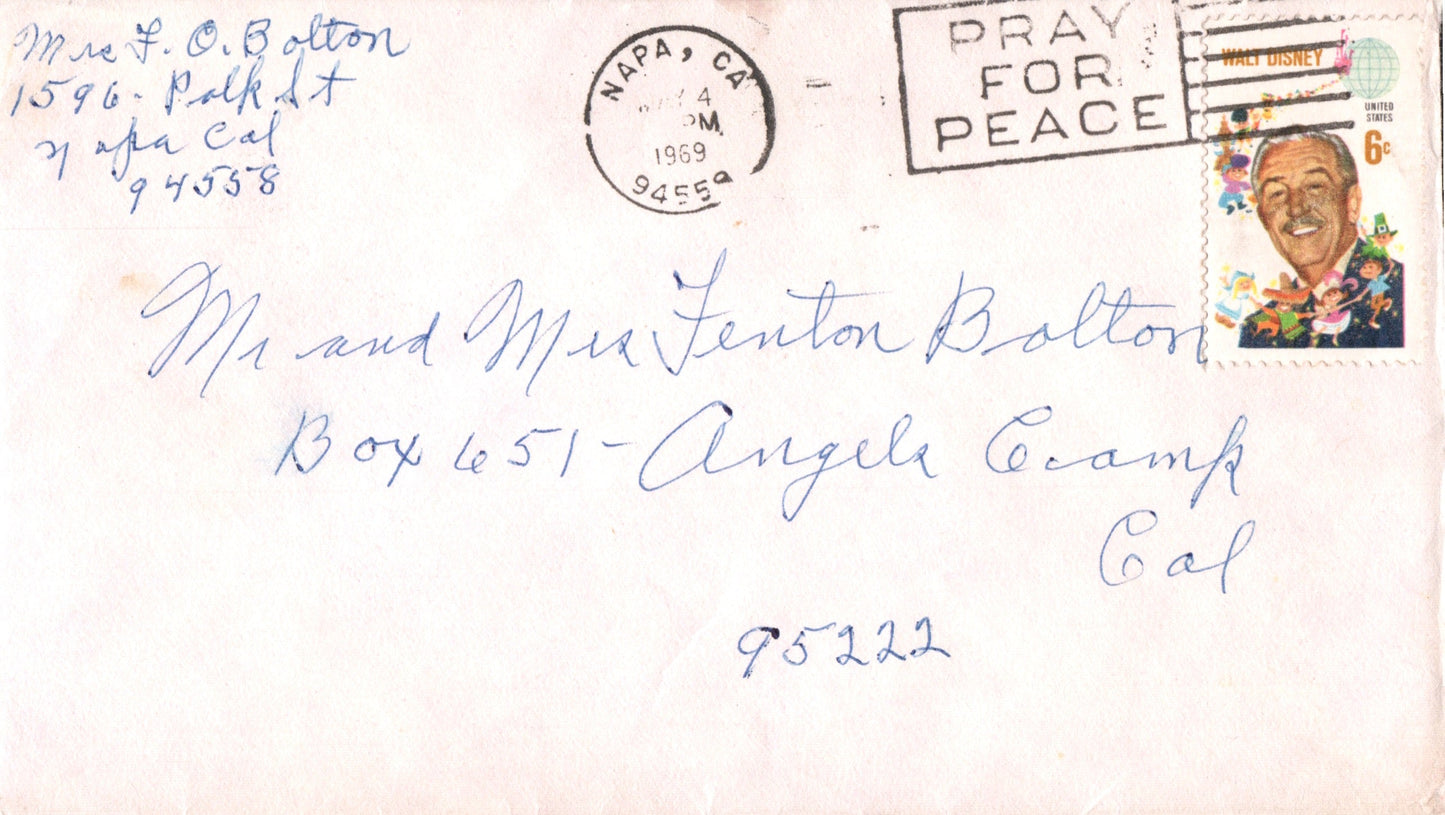 Mrs F. O. Bolton
1596 - Polk St
Napa Cal
94558
NAPA, CA
4
PM
1969
9455
PRAY
FOR
PEACE
WALT DISNEY
UNITED
STATES
6c
Mr and Mrs Fenton Bolton
Box 651 - Angels Camp
Cal
95222